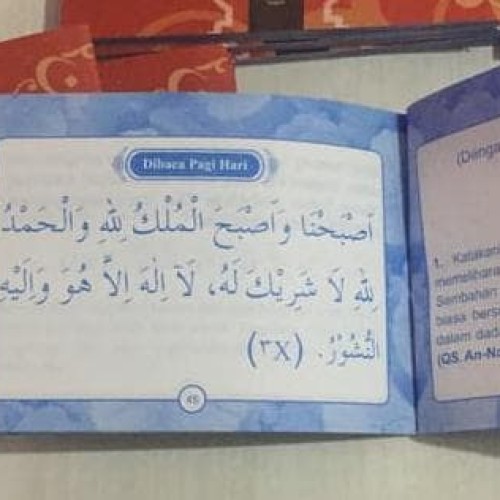 Dibaca Pagi Hari
اَصْبَحْنَا وَاَصْبَحَ الْمُلْكُ لِلّٰهِ وَالْحَمْدُ
لِلّٰهِ لَا شَرِيْكَ لَهُ، لَآ اِلٰهَ اِلاَّ هُوَ وَاِلَيْهِ
النُّشُوْرُ. (٣X)
1. Katakan
memelihara
Sembahan
biasa bers
dalam dad
(QS. An-Na